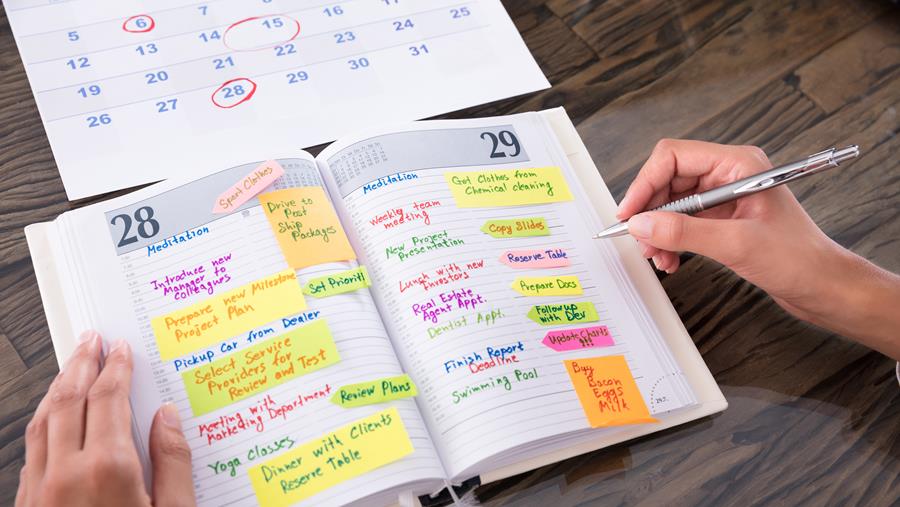 6 7 15 16 17
5 14 15 23 24 25
12 13 21 22 30 31
19 20 28 29
26 27
28
Sport Clothes
Drive to
Post
Ship
Packages
Meditation
Introduce new
Manager to
colleagues
Set Prioriti
Prepare new Milestone
Project Plan
Pickup Car from Dealer
Select Service
Providers for
Review and Test
Review Plans
Meeting with
Marketing Department
Yoga Classes
Dinner with Clients
Reserve Table
29
Meditation
Get Clothes from
Chemical cleaning
Weekly team
meeting
Copy Slides
New Project
Presentation
Reserve Table
Lunch with new
Investors
Prepare Docs
Real Estate
Agent Appt.
Follow up
with Dev
Dentist Appt.
Update Charts
!!!
Finish Report
Deadline
Buy
Bacon
Eggs
Milk
Swimming Pool